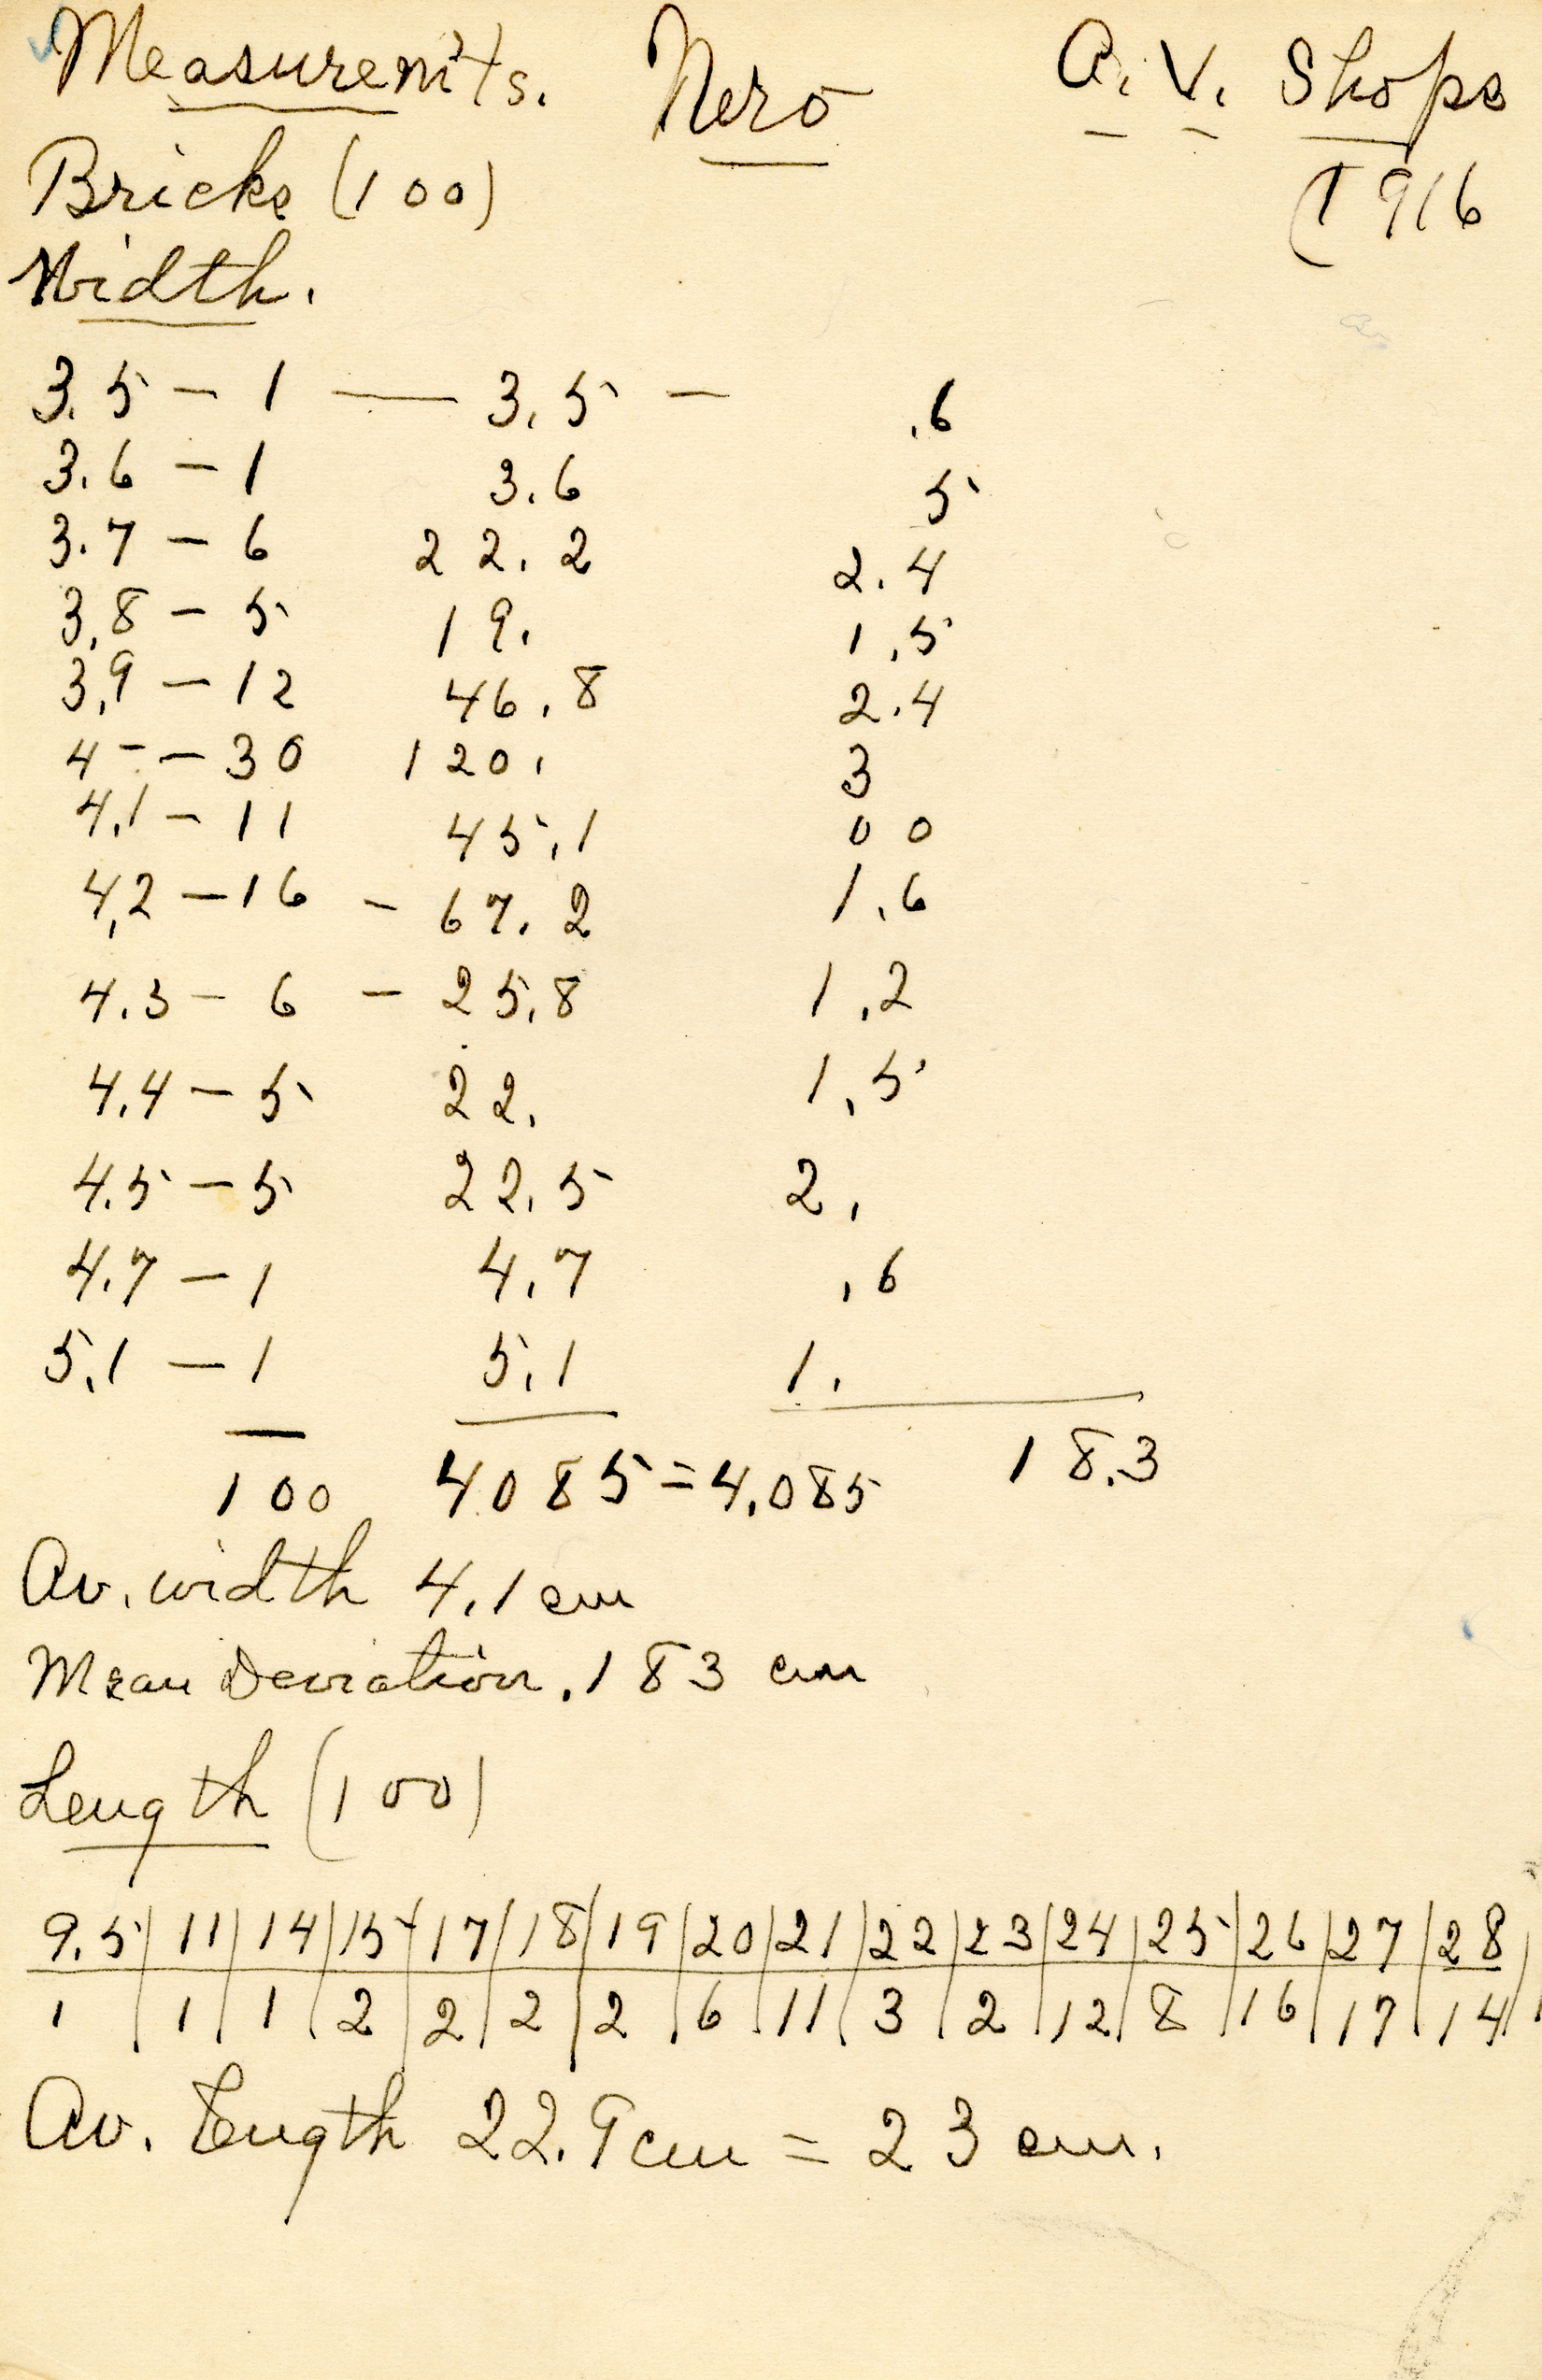 Measurem'ts. Nero A. V. Shops
Bricks (100) (1916
Width.
3.5 - 1 — 3.5 - .6
3.6 - 1 3.6 5
3.7 - 6 22.2 2.4
3.8 - 5 19. 1.5
3.9 - 12 46.8 2.4
4 - - 30 120. 3
4.1 - 11 45.1 00
4.2 - 16 - 67.2 1.6
4.3 - 6 - 25.8 1.2
4.4 - 5 22. 1.5
4.5 - 5 22.5 2.
4.7 - 1 4.7 .6
5.1 - 1 5.1 1.
100 4085 = 4.085 18.3
Av. width 4.1 cm
Mean Deviation .183 cm
Length (100)
9.5 | 11 | 14 | 15 | 17 | 18 | 19 | 20 | 21 | 22 | 23 | 24 | 25 | 26 | 27 | 28
1 | 1 | 1 | 2 | 2 | 2 | 2 | 6 | 11 | 3 | 2 | 12 | 8 | 16 | 17 | 14
Av. Length 22.9 cm = 23 cm.